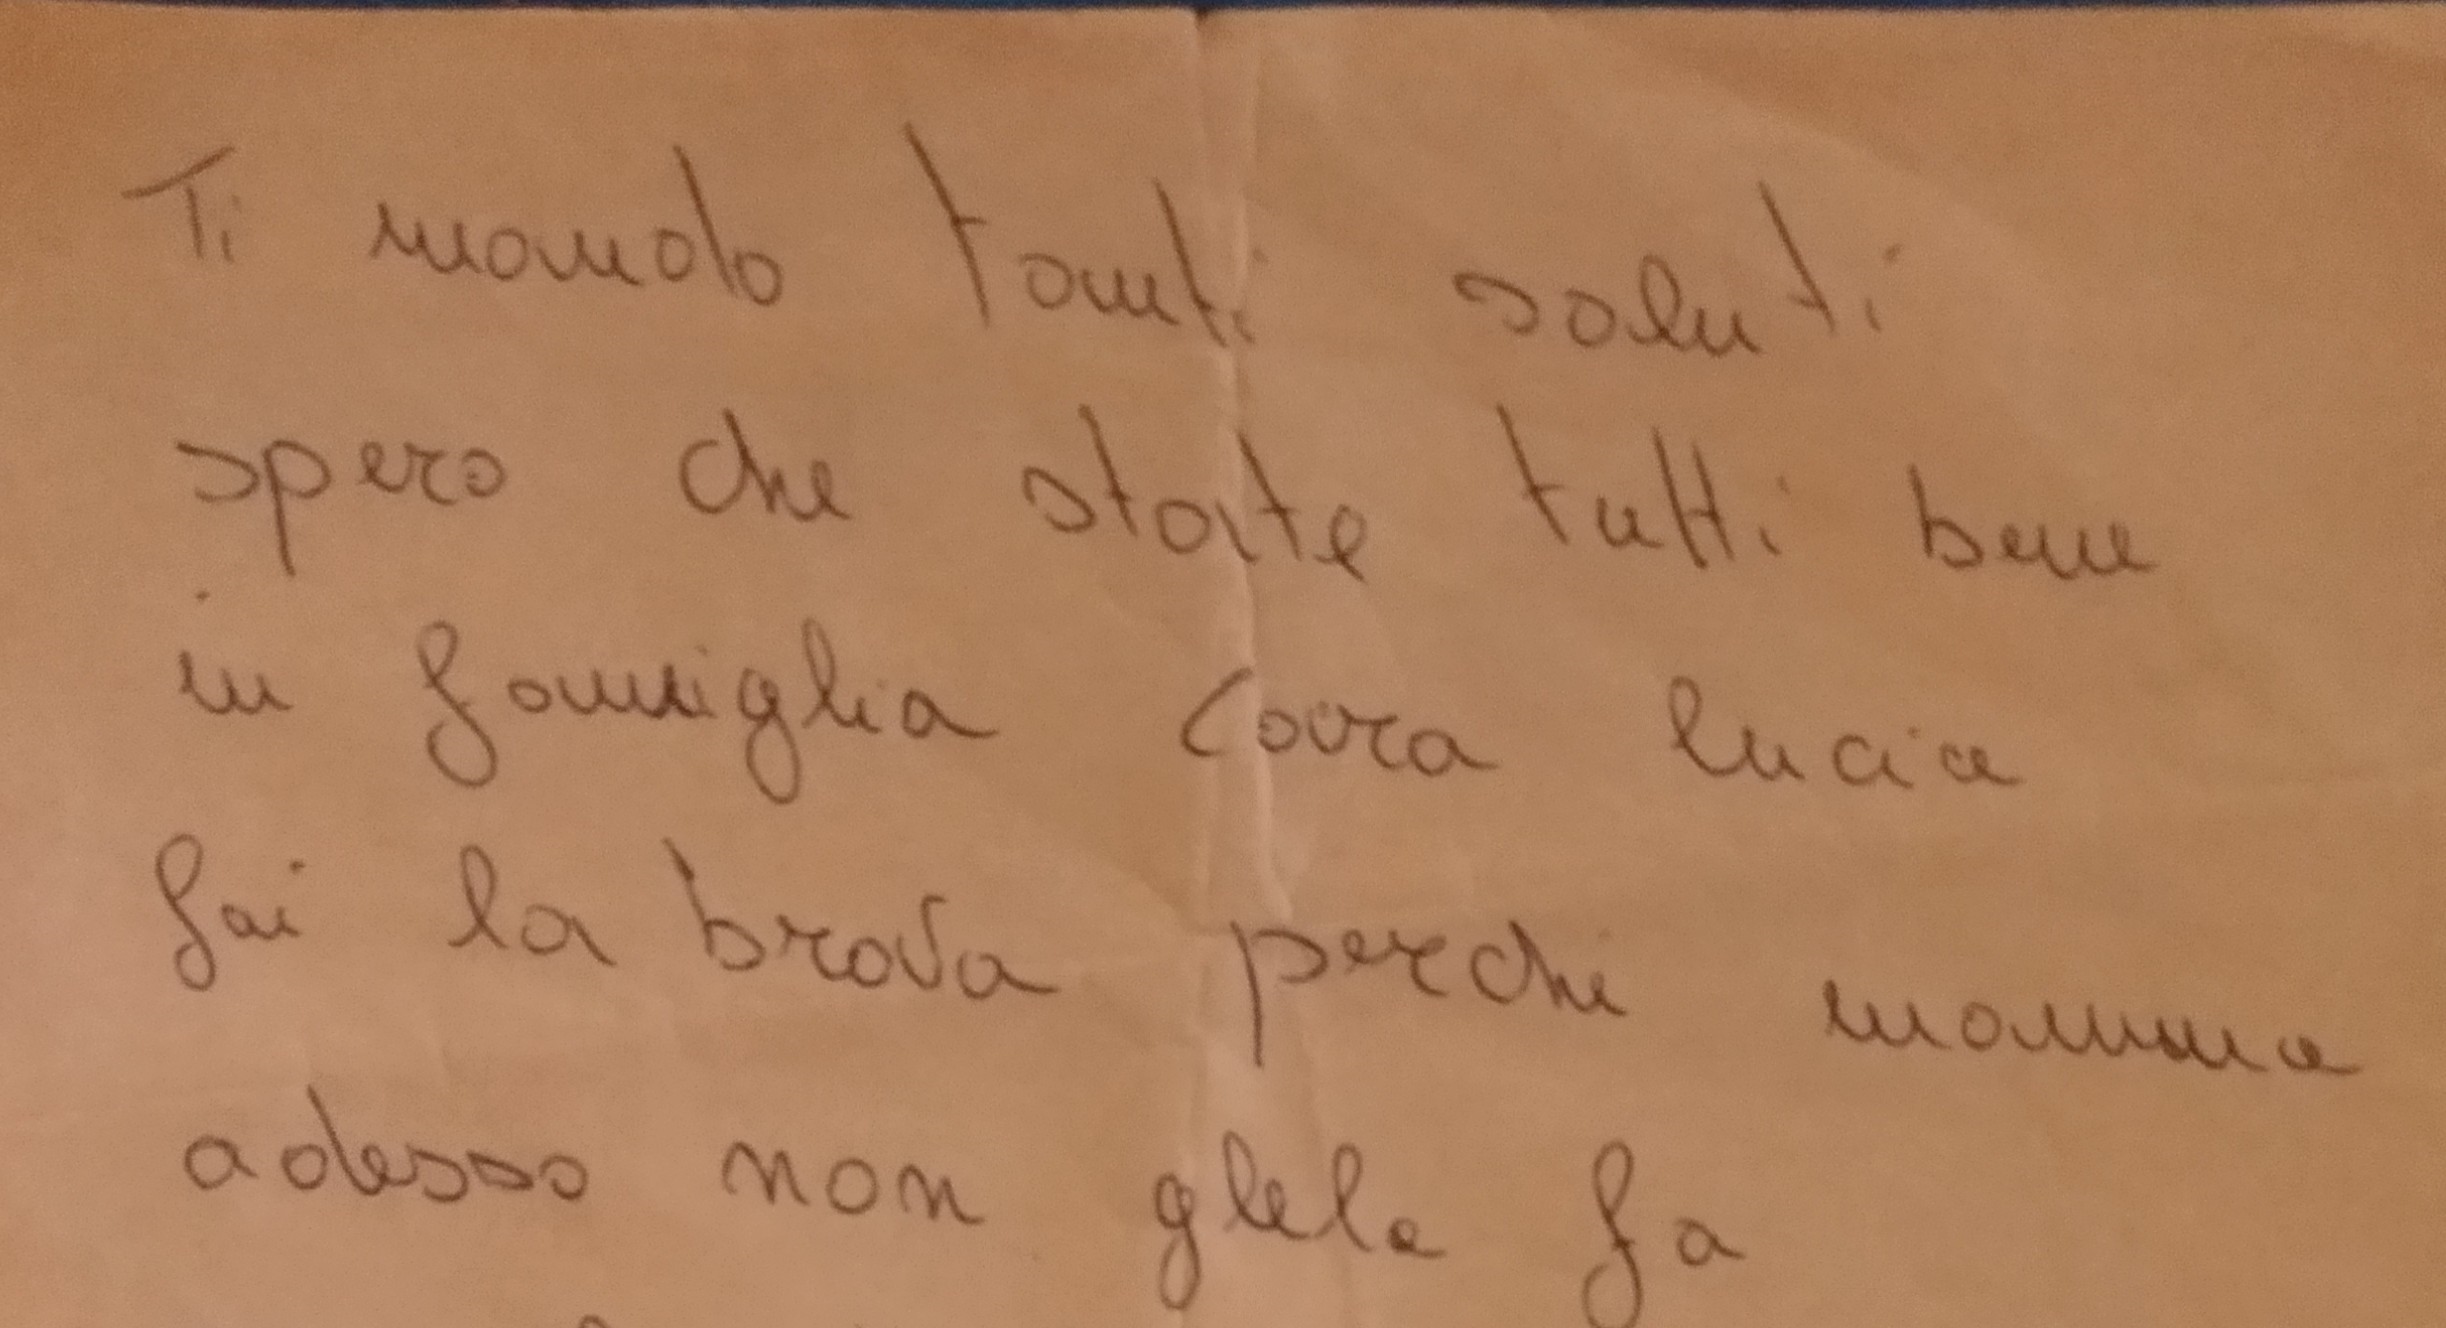 Ti mando tanti saluti
spero che state tutti bene
in famiglia Cara lucia
fai la brava perche mamma
adesso non glela fa